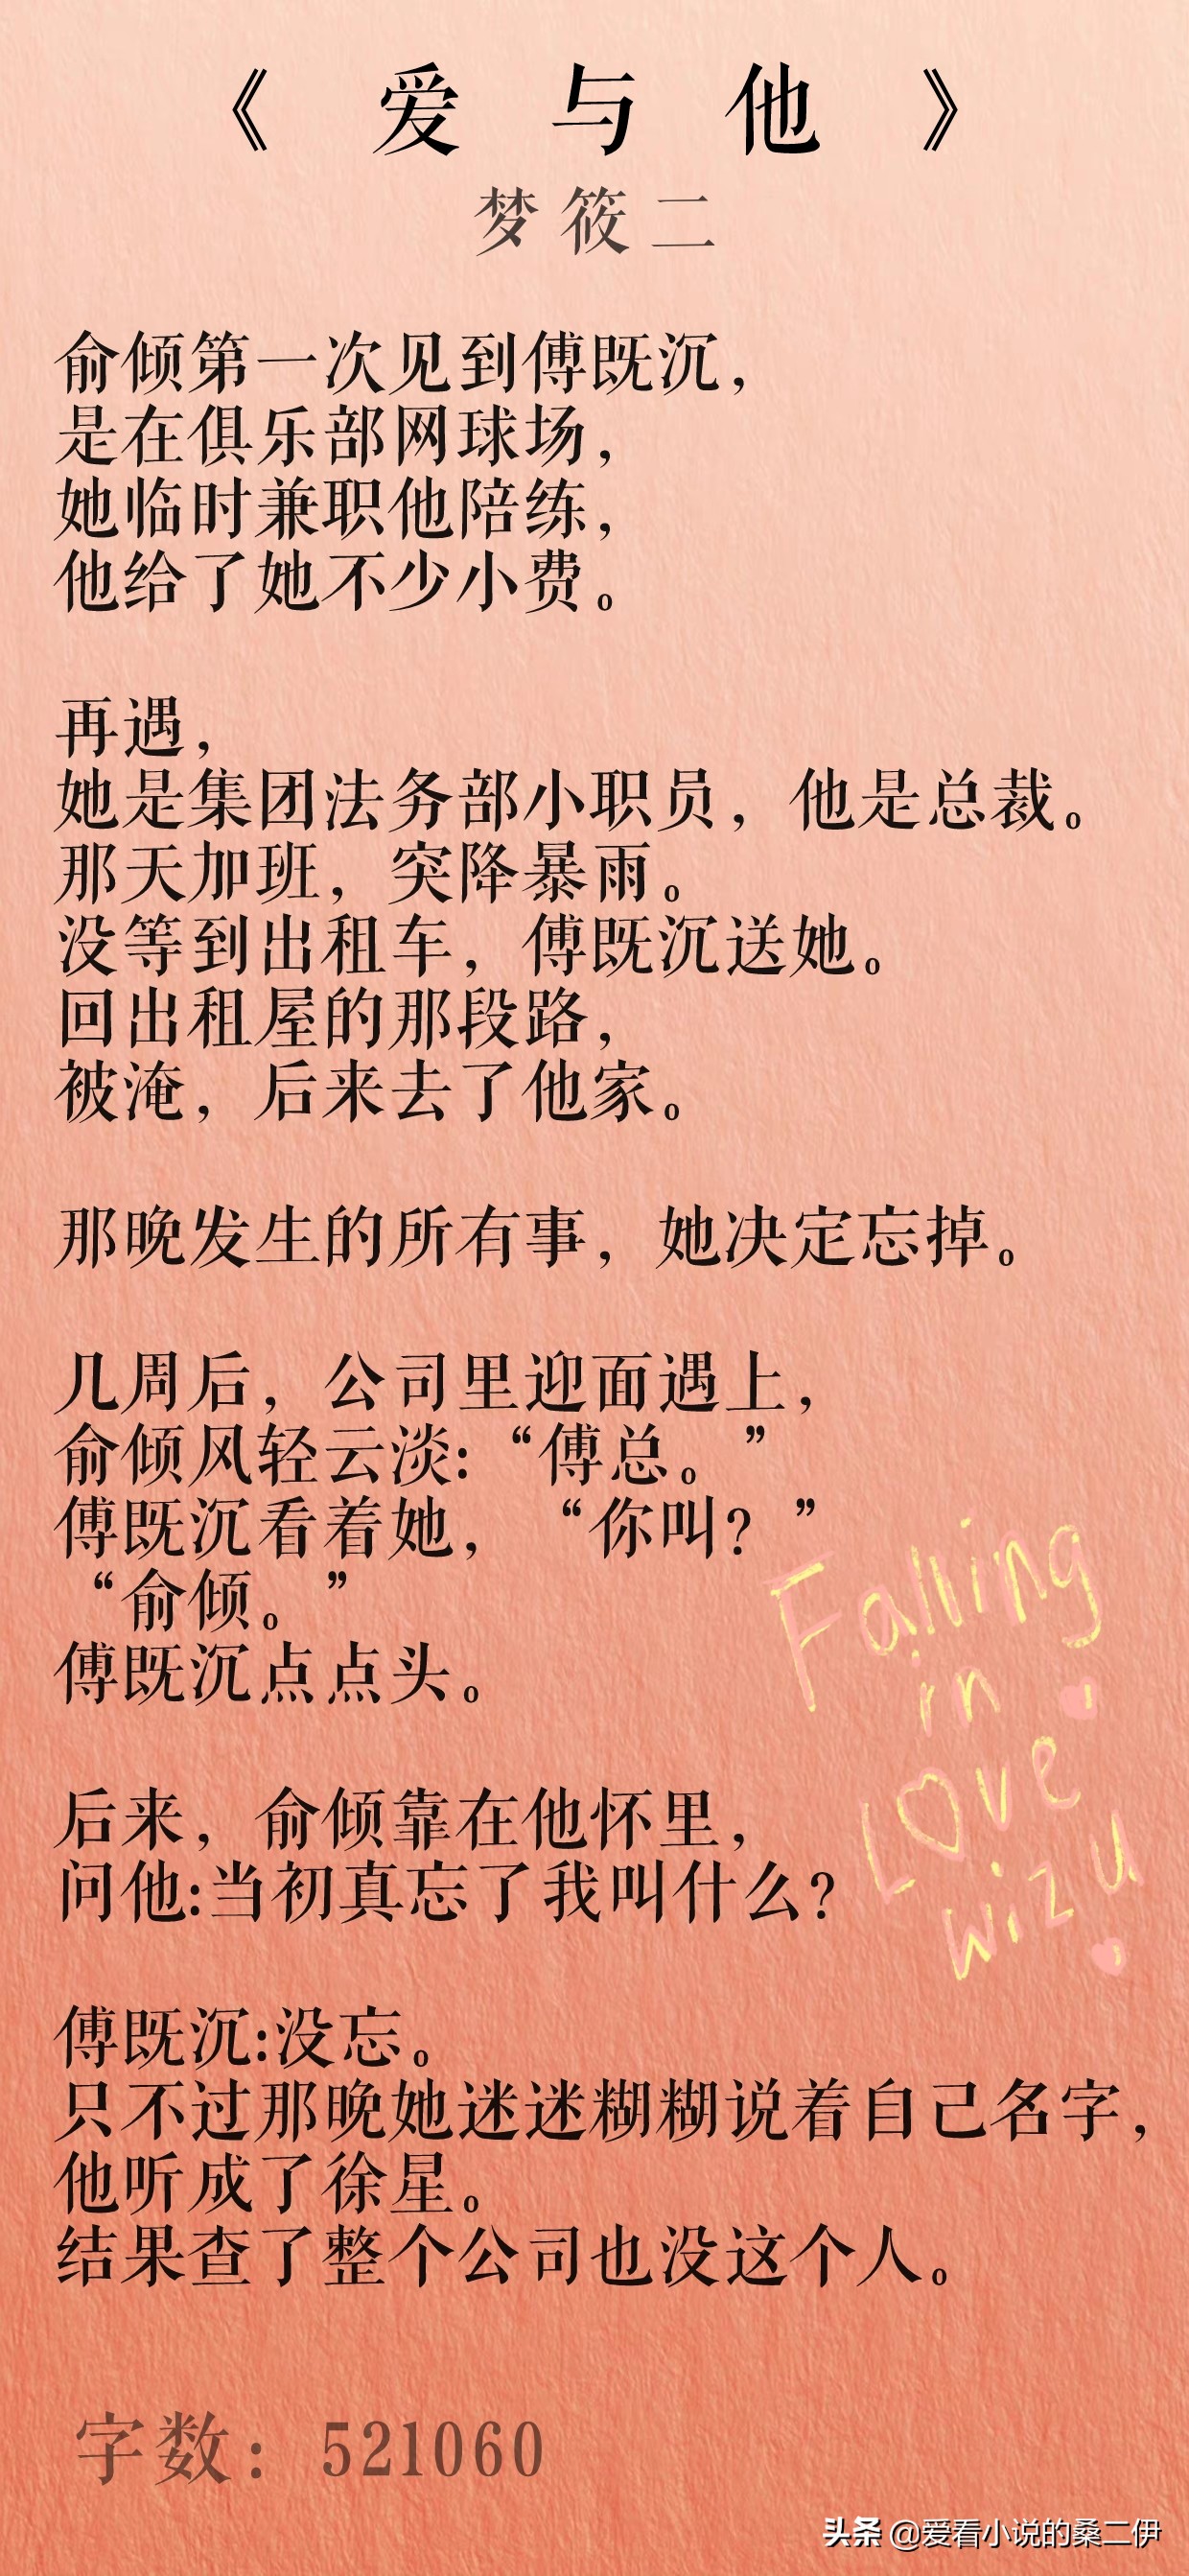 《爱与他》
梦筱二
俞倾第一次见到傅既沉，
是在俱乐部网球场，
她临时兼职他陪练，
他给了她不少小费。
再遇，
她是集团法务部小职员，他是总裁。
那天加班，突降暴雨。
没等到出租车，傅既沉送她。
回出租屋的那段路，
被淹，后来去了他家。
那晚发生的所有事，她决定忘掉。
几周后，公司里迎面遇上，
俞倾风轻云淡:“傅总。”
傅既沉看着她，“你叫?”
“俞倾。”
傅既沉点点头。
Falling
in
Love
wiz u
后来，俞倾靠在他怀里，
问他:当初真忘了我叫什么?
傅既沉:没忘。
只不过那晚她迷迷糊糊说着自己名字，
他听成了徐星。
结果查了整个公司也没这个人。
字数：521060
头条 @爱看小说的桑二伊